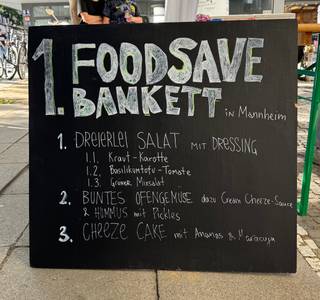 1. FOODSAVE
BANKETT in Mannheim
1. DREIERLEI SALAT MIT DRESSING
1.1. Kraut-Karotte
1.2. Basilikumtofu-Tomate
1.3. Grüner Mixsalat
2. BUNTES OFENGEMÜSE dazu Cream Cheeze-Sauce
& HUMMUS mit Pickles
3. CHEEZE CAKE mit Ananas & Maracuja